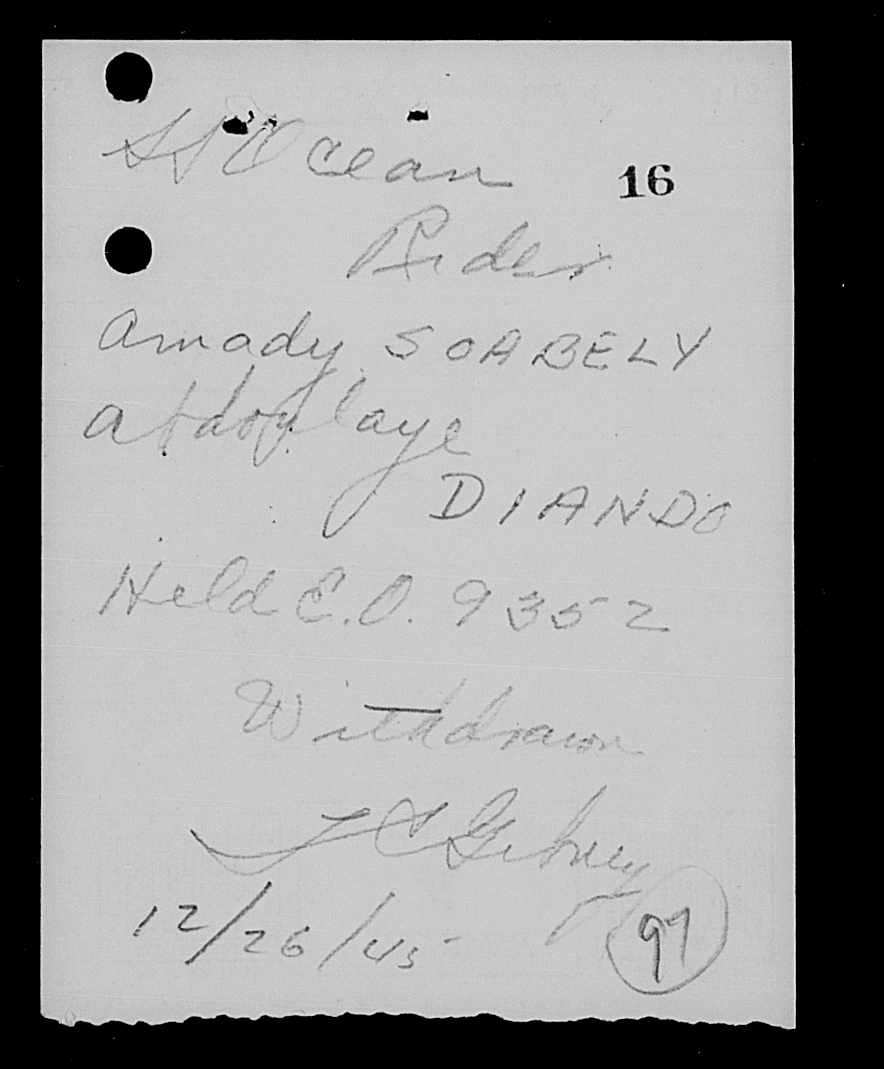 SS Ocean
16
Rider
Amady SOABELY
Abdoulaye
DIANDO
Held E.O. 9352
Withdrawn
J C Gibney
12/26/45
97